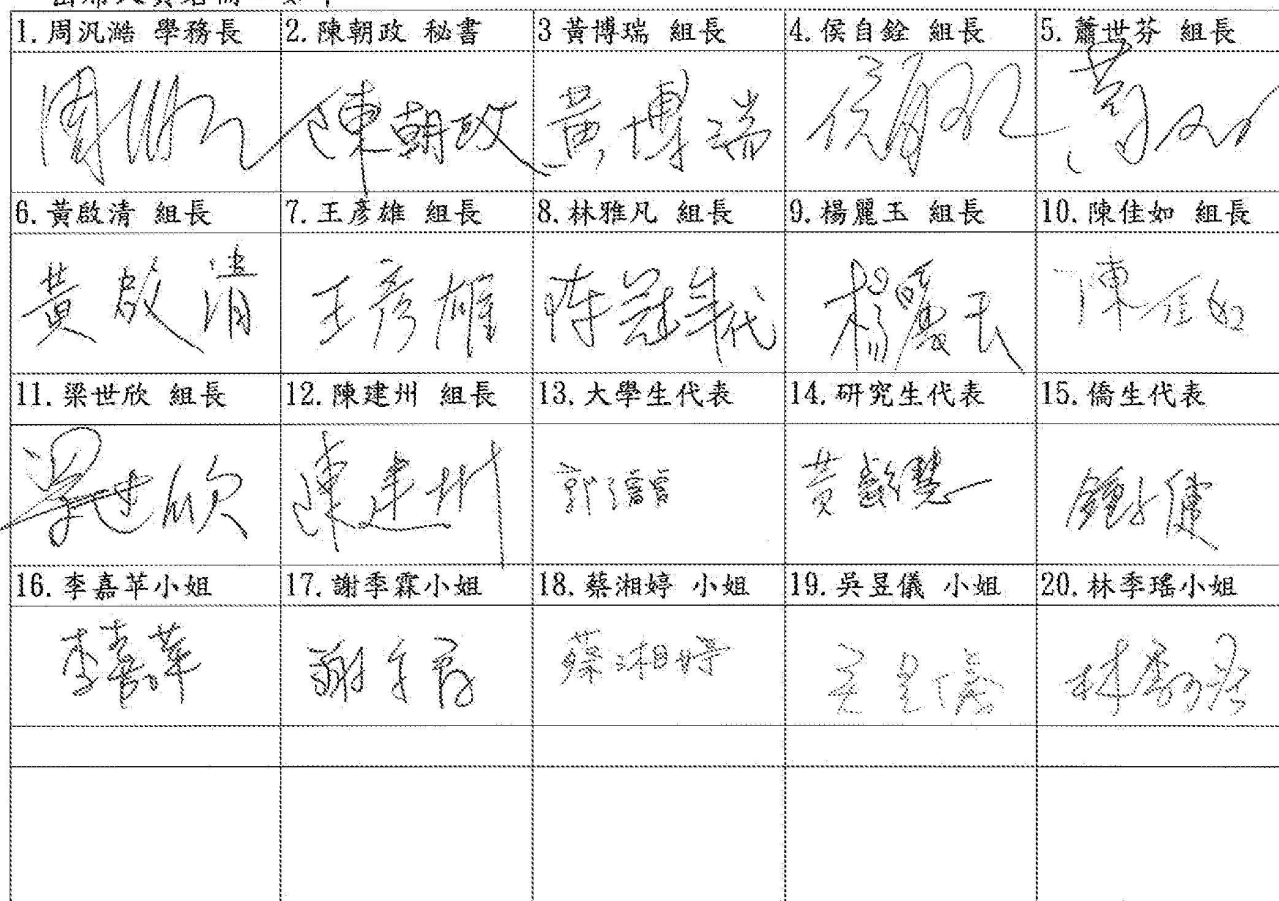 1.周汎澔 學務長 2.陳朝政 秘書 3黃博瑞 組長 4.侯自銓 組長 5.蕭世芬 組長
陳朝政 黃博瑞
6.黃啟清 組長 7.王彥雄 組長 8.林雅凡 組長 9.楊麗玉 組長 10.陳佳如 組長
黃啟清 王彥雄 楊麗玉 陳佳如
11.梁世欣 組長 12.陳建州 組長 13.大學生代表 14.研究生代表 15.僑生代表
梁世欣 陳建州
16.李嘉苹小姐 17.謝季霖小姐 18.蔡湘婷 小姐 19.吳昱儀 小姐 20.林季瑤小姐
李嘉苹 蔡湘婷